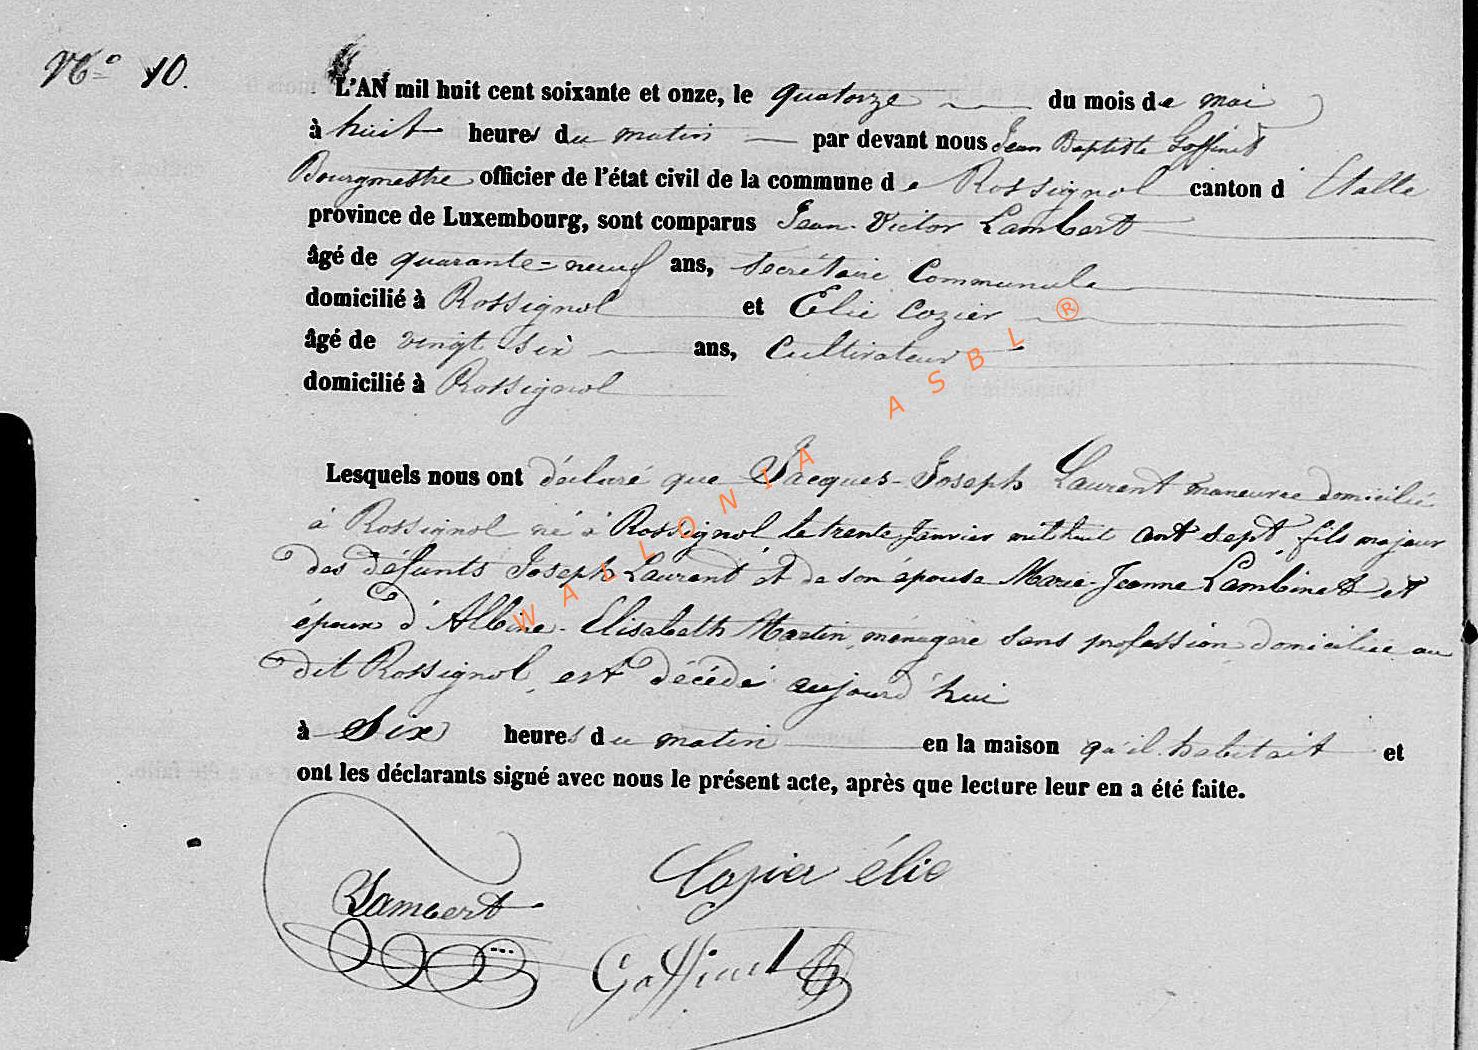 Nº 10.
L'AN mil huit cent soixante et onze, le quatorze du mois de mai
à huit heures du matin par devant nous Jean Baptiste Goffinet
Bourgmestre officier de l'état civil de la commune de Rossignol canton d' Etalle
province de Luxembourg, sont comparus Jean-Victor Lambert
âgé de quarante-neuf ans, secrétaire Communale
domicilié à Rossignol et Elie Cozier
âgé de vingt-six ans, Cultivateur
domicilié à Rossignol
Lesquels nous ont déclaré que Jacques-Joseph Laurent maneuvre domicilié
à Rossignol né à Rossignol le trente Janvier mil huit cent sept, fils majeur
des défunts Joseph Laurent et de son épouse Marie-Jeanne Lambinet et
époux d'Albine-Elisabeth Martin, ménagère sans profession domiciliée au
dit Rossignol, est décédé aujourd'hui
à six heures du matin en la maison qu'il habitait et
ont les déclarants signé avec nous le présent acte, après que lecture leur en a été faite.
Lambert
Cozier élie
Goffinet
WALLONIA ASBL ®